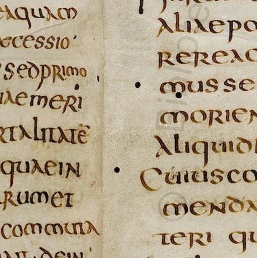 aequam
ecessio
sedprimo
iaemeri
rtalitate
quaein
rumet
commuta
aliaepo
rereac
musse
morien
aliquid
cuiusco
menda
teri qu